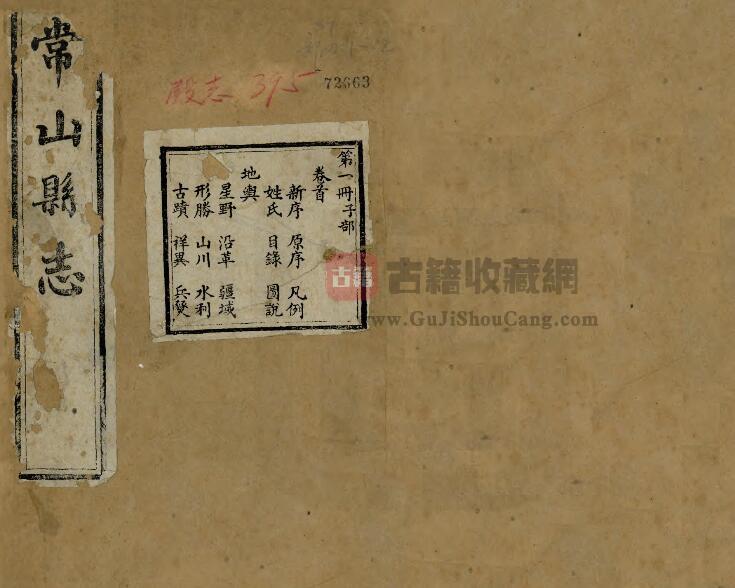 常山縣志
殿志 395
72663
第一冊子部
卷首
新序 原序 凡例
姓氏 目錄 圖說
地輿
星野 沿革 疆域
形勝 山川 水利
古蹟 祥異 兵燹
古籍
古籍收藏網
www.GuJiShouCang.com